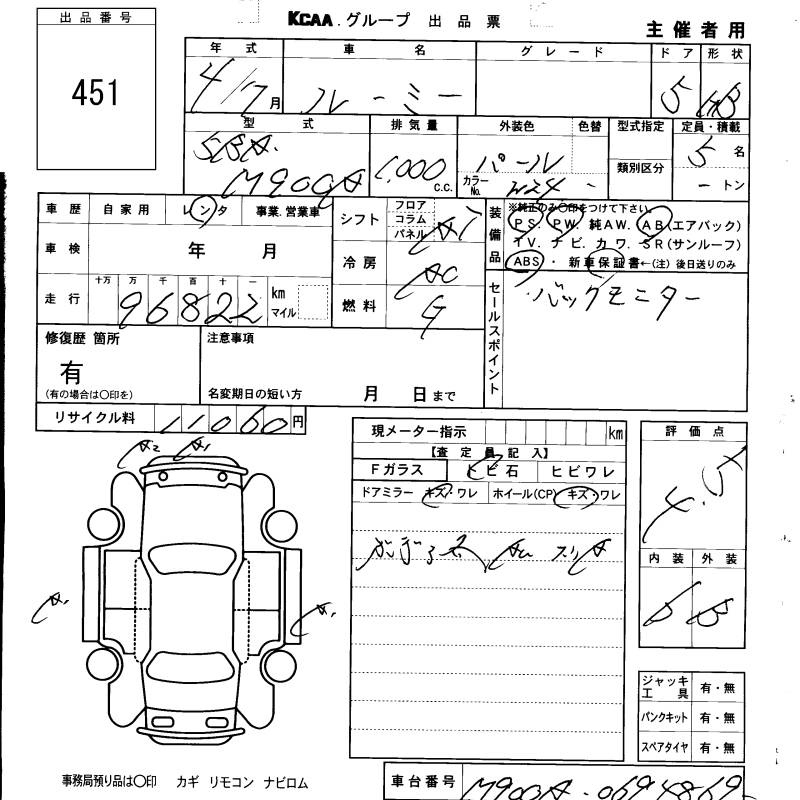 出品番号
451
KCAA.グループ 出品票
主催者用
年式 車名 グレード ドア 形状
4/7月 ルーミー 5 HB
型式 排気量 外装色 色替 型式指定 定員・積載
5BA.
M900A 1,000 c.c. パール カラーNo. W24 - 類別区分 5名
-トン
車歴 自家用 レンタ 事業.営業車
車検 年 月
走行 十万 万 千 百 十 一 km マイル
96822
シフト フロア コラム パネル AT
冷房 AC
燃料 G
装備品 ※純正のみ〇印をつけて下さい。
PS. PW. 純AW. AB(エアバック)
TV. ナビ. カワ. SR(サンルーフ)
ABS・ 新車保証書←(注) 後日送りのみ
セールスポイント バックモニター
修復歴 箇所
有
(有の場合は〇印を)
注意事項
名変期日の短い方 月 日まで
リサイクル料 11060円
現メーター指示 km
【査定員記入】
Fガラス トビ石 ヒビワレ
ドアミラー キズ・ワレ ホイール(CP) キズ・ワレ
評価点
内装 外装
B B
A2 A1
A1 A1
ジャッキ工具 有・無
パンクキット 有・無
スペアタイヤ 有・無
事務局預り品は〇印 カギ リモコン ナビロム
車台番号 M900A-0694869